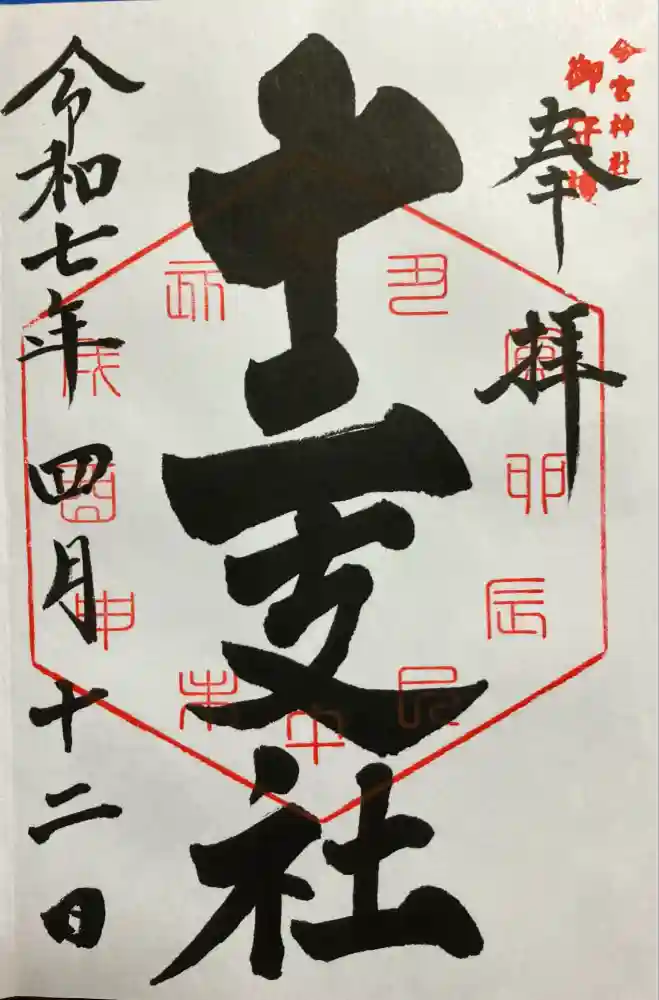 今宮神社
奉拝
十二支社
丑
寅
卯
辰
巳
午
未
申
酉
戌
亥
令和七年四月十二日